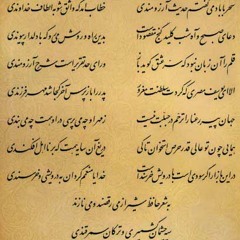 سحر با باد میگفتم حدیث آرزومندی خطاب آمد که واثق شو بالطاف خداوندی
دعای صبح و آه شب کلید گنج مقصودست بدین راه و روش میرو که با دلدار پیوندی
قلم را آن زبان نبود که سر عشق گوید باز ورای حد تقریرست شرح آرزومندی
الا ای یوسف مصری که کردت سلطنت مغرور پدر را باز پرس آخر کجا شد مهر فرزندی
جهان پیر رعنا را ترحم در جبلت نیست ز مهر او چه می پرسی درو همت چه می بندی
همایی چون تو عالی قدر حرص استخوان تا کی دریغ آن سایه همت که بر نااهل افکندی
درین بازار اگر سودیست با درویش خرسندست خدایا منعمم گردان به درویشی و خرسندی
به شعر حافظ شیراز می رقصند و می نازند
سیه چشمان کشمیری و ترکان سمرقندی